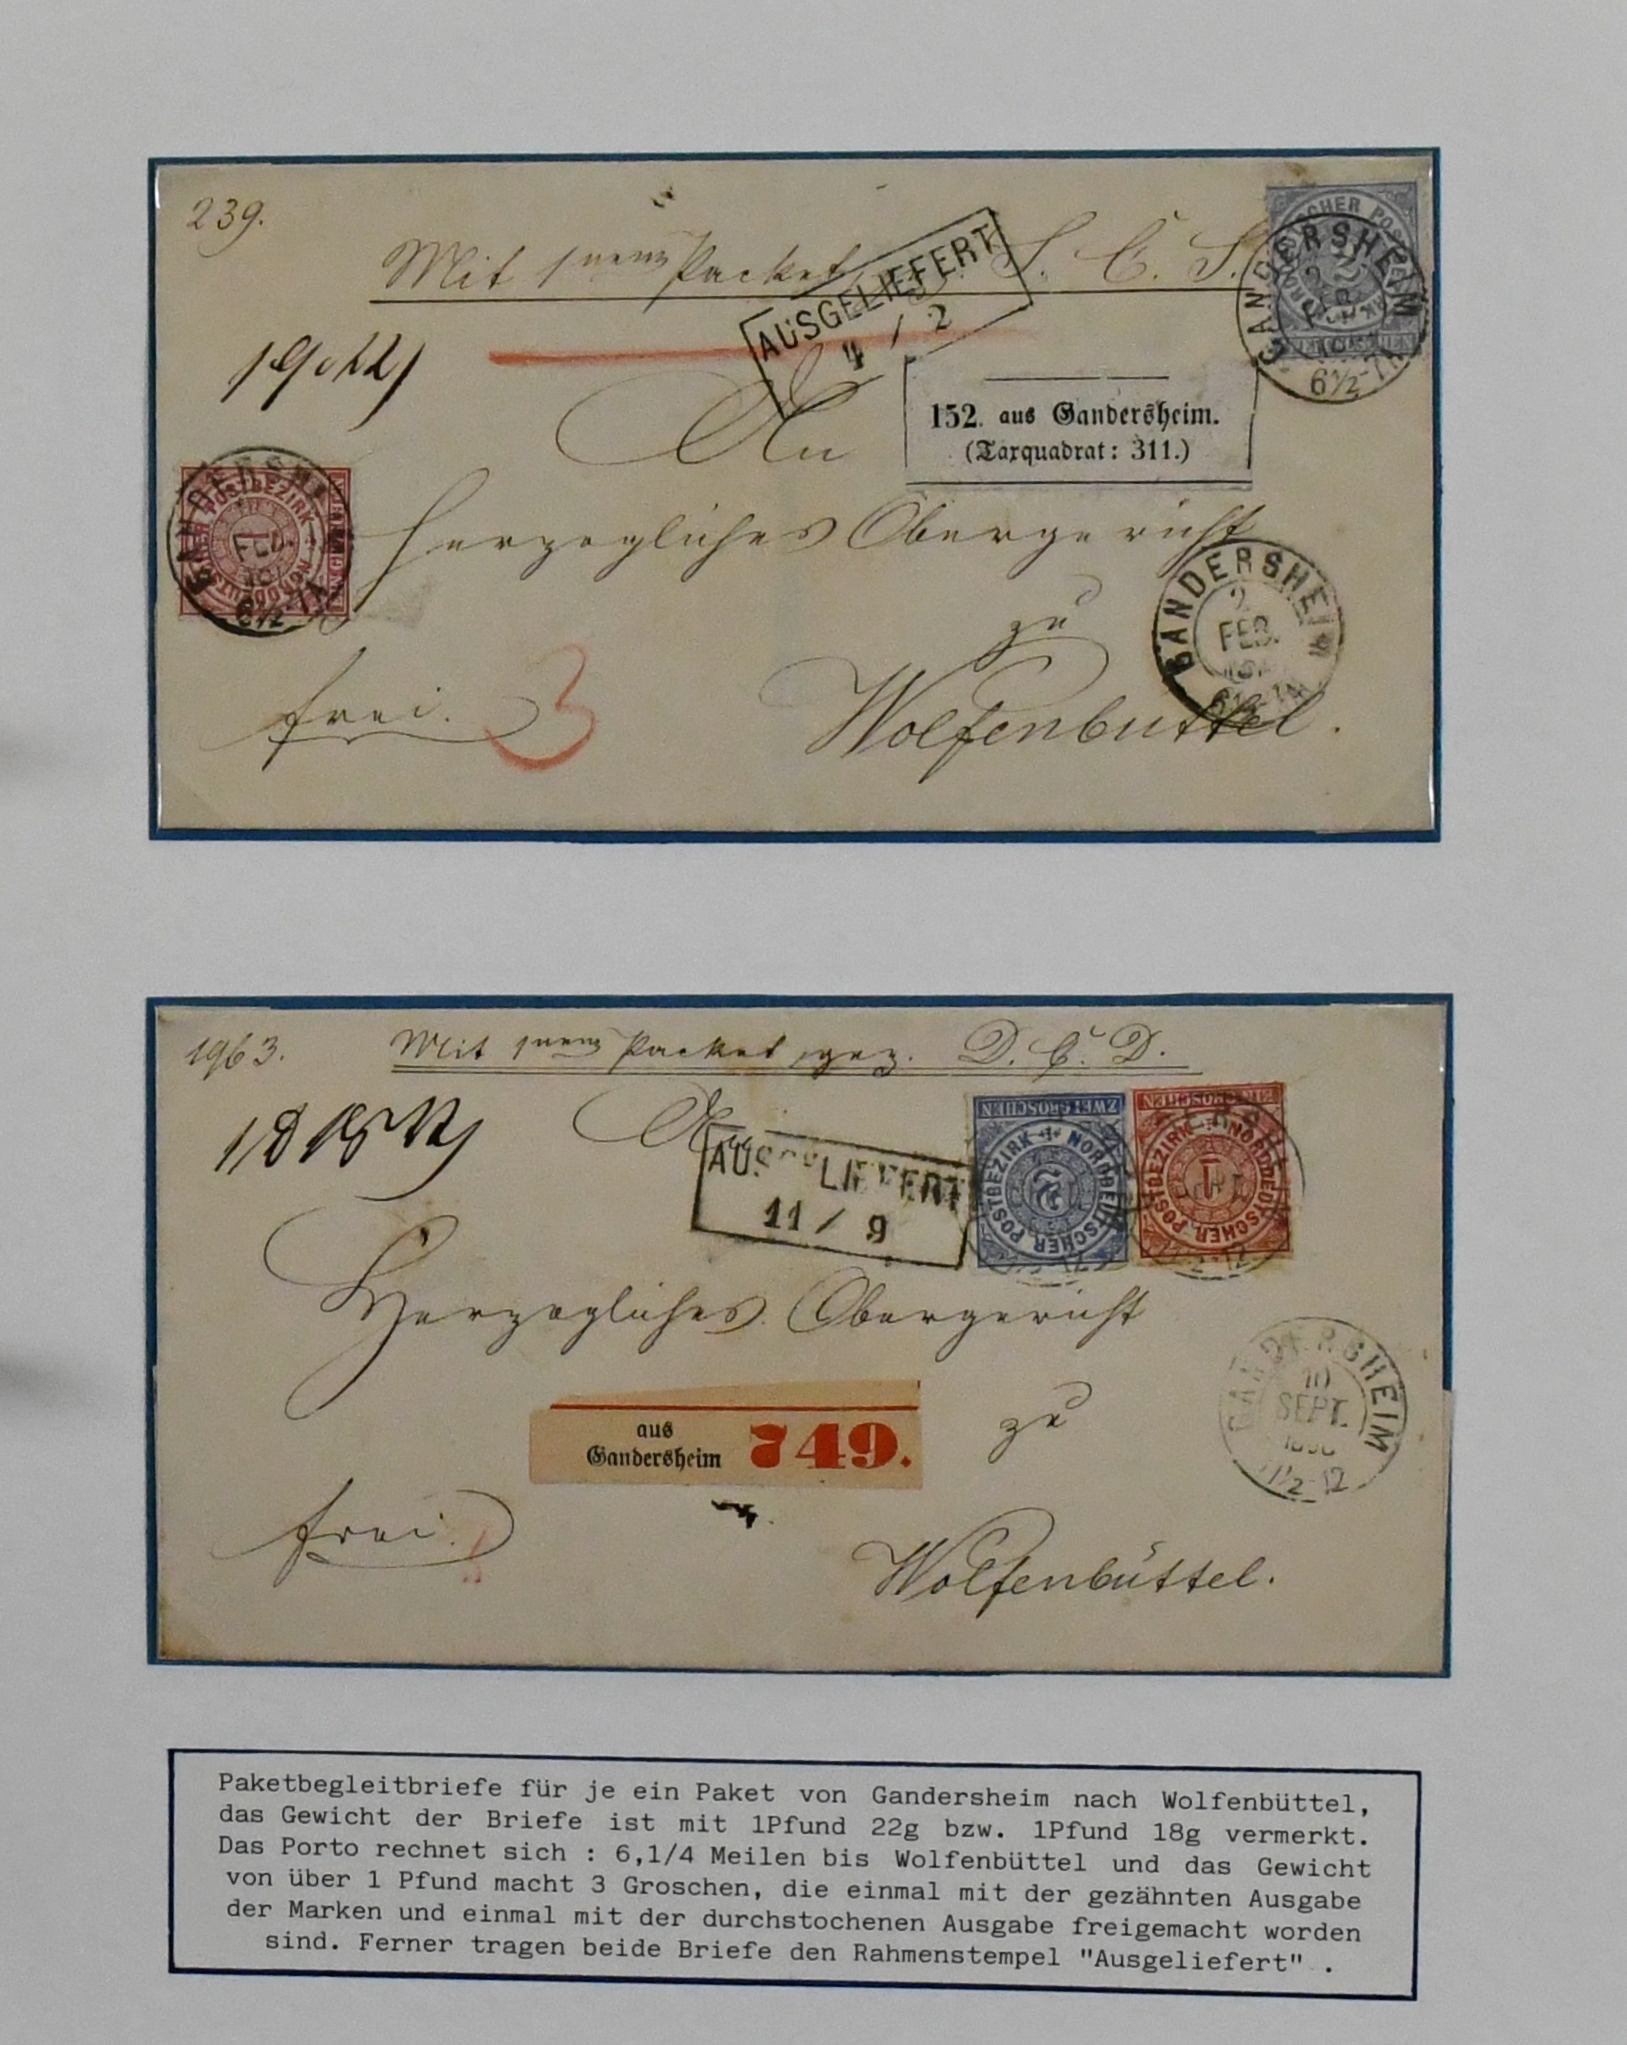 239.
Mit 1 Packet S. C. S.
AUSGELIEFERT
4 / 2
NORDDEUTSCHER POSTBEZIRK
2
ZWEI GROSCHEN
GANDERSHEIM
2
FEB.
6½-7N
152. aus Gandersheim.
(Taxquadrat: 311.)
An
NORDDEUTSCHER POSTBEZIRK
1
GANDERSHEIM
FEB.
6½-7N
Herzogliches Obergericht
zu
GANDERSHEIM
2
FEB.
Wolfenbuttel.
frei.
3
1963.
Mit 1 Packet, gez. D. C. D.
An
AUSGELIEFERT
11 / 9
ZWEI GROSCHEN
NORDDEUTSCHER POSTBEZIRK
2
EIN GROSCHEN
NORDDEUTSCHER POSTBEZIRK
1
Herzogliches Obergericht
aus
Gandersheim 749.
zu
GANDERSHEIM
10
SEPT.
11½-12
frei.
Wolfenbüttel.
Paketbegleitbriefe für je ein Paket von Gandersheim nach Wolfenbüttel,
das Gewicht der Briefe ist mit 1Pfund 22g bzw. 1Pfund 18g vermerkt.
Das Porto rechnet sich : 6,1/4 Meilen bis Wolfenbüttel und das Gewicht
von über 1 Pfund macht 3 Groschen, die einmal mit der gezähnten Ausgabe
der Marken und einmal mit der durchstochenen Ausgabe freigemacht worden
sind. Ferner tragen beide Briefe den Rahmenstempel "Ausgeliefert" .